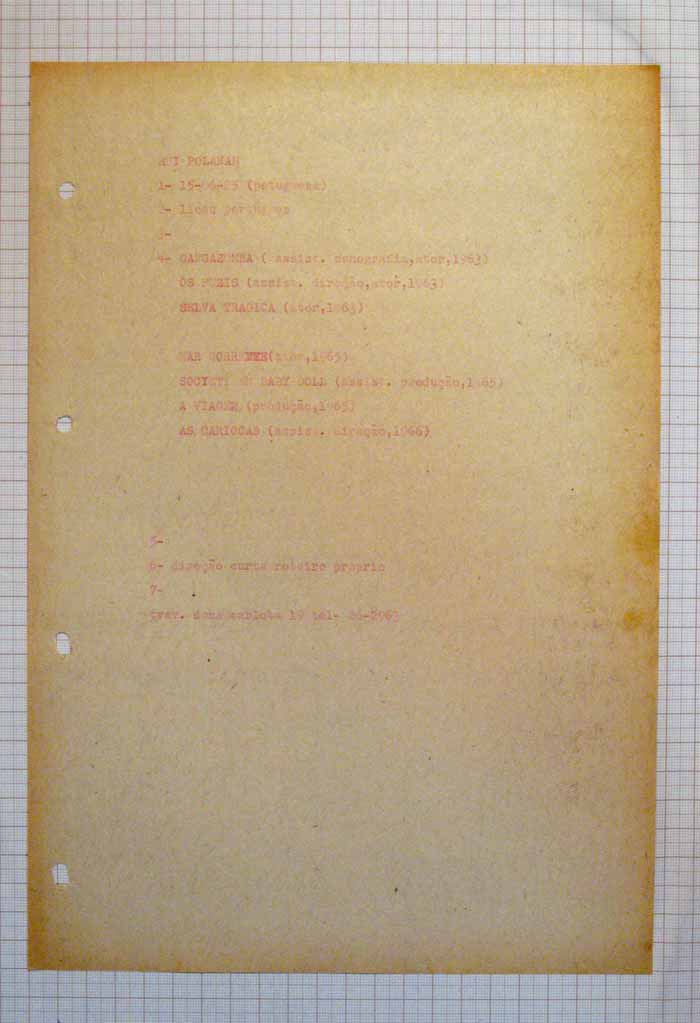 RUI POLANAH
1- 15-06-25 (potuguesa)
2- liceu português
3-
4- GANGAZUMBA ( assist. cenografia,ator,1963)
OS FUZIS (assist. direção,ator,1963)
SELVA TRAGICA (ator,1963)
MAR CORRENTE(ator,1965)
SOCYETI BABY DOLL (assist. produção,1965)
A VIAGEM (produção,1965)
AS CARIOCAS (assist. direção,1966)
5-
6- direção curta roteiro proprio
7-
trav. dona carlota 19 tel- 26-2963